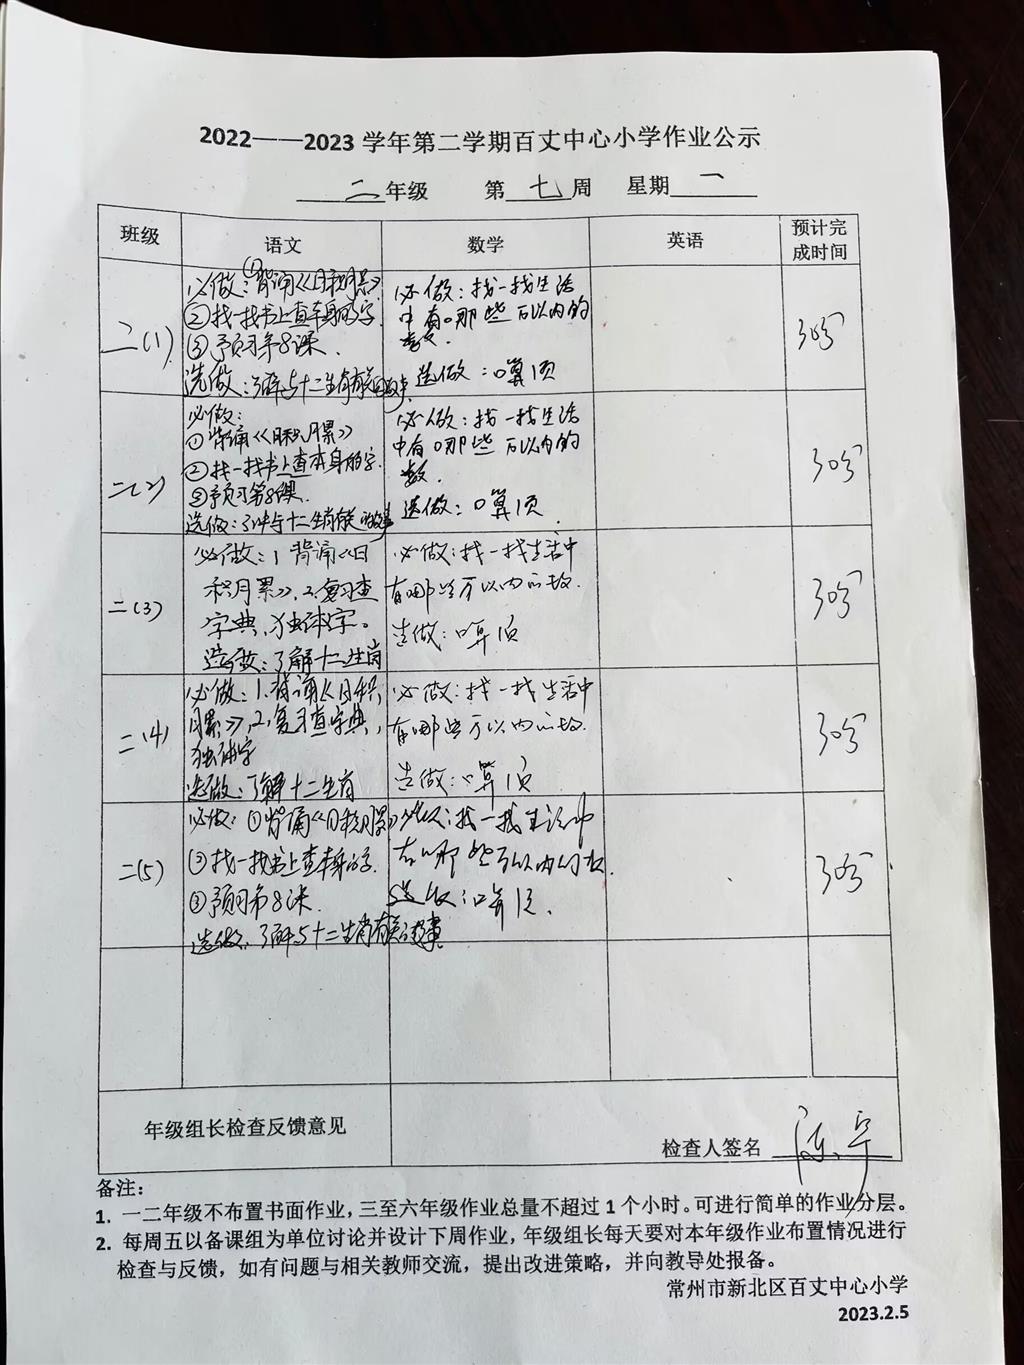 2022——2023 学年第二学期百丈中心小学作业公示
二年级 第七周 星期一
班级 语文 数学 英语 预计完成时间
二(1)
必做:①背诵《日积月累》
②找一找书上查本身的字.
③预习第8课.
选做:了解与十二生肖有关的故事.
必做:找一找生活
中有哪些万以内的
数.
选做:口算1页
30分
二(2)
必做:
①背诵《日积月累》
②找一找书上查本身的字.
③预习第8课.
选做:了解与十二生肖有关的故事
必做:找一找生活
中有哪些万以内的
数.
选做:口算1页.
30分
二(3)
必做:1.背诵《日
积月累》,2.复习查
字典,独体字。
选做:了解十二生肖
必做:找一找生活中
有哪些万以内的数.
选做:口算1页
30分
二(4)
必做:1.背诵《日积
月累》,2.复习查字典,
独体字
选做:了解十二生肖
必做:找一找生活中
有哪些万以内的数.
选做:口算1页
30分
二(5)
必做:①背诵《日积月累》
②找一找书上查本身的字.
③预习第8课.
选做:了解与十二生肖有关的故事
必做:找一找生活中
有哪些万以内的数.
选做:口算1页.
30分
年级组长检查反馈意见
检查人签名
备注:
1. 一二年级不布置书面作业,三至六年级作业总量不超过 1 个小时。可进行简单的作业分层。
2. 每周五以备课组为单位讨论并设计下周作业,年级组长每天要对本年级作业布置情况进行
检查与反馈,如有问题与相关教师交流,提出改进策略,并向教导处报备。
常州市新北区百丈中心小学
2023.2.5